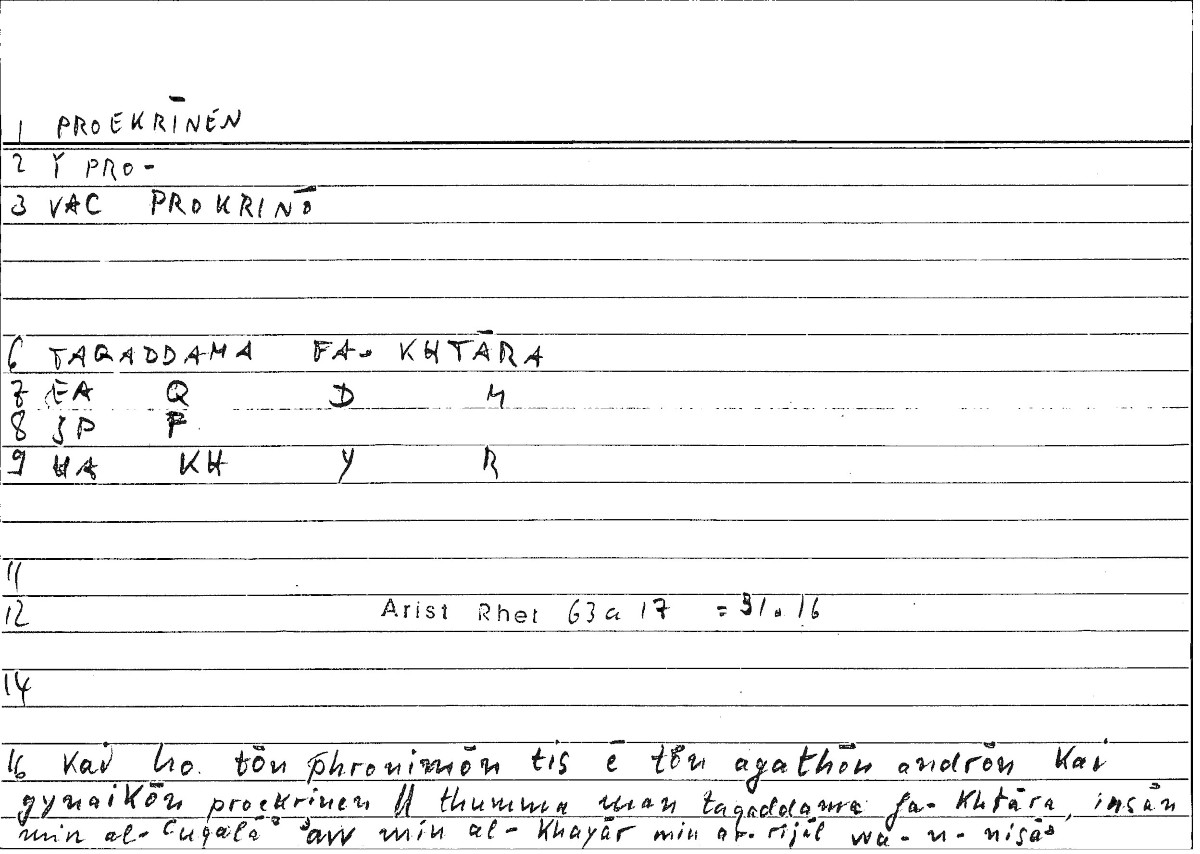 1 PROEKRĪNEN
2 Y PRO-
3 VAC PROKRINŌ
6 TAQADDAMA FA- KHTĀRA
7 EA Q D M
8 JP F
9 HA KH Y R
11
12 Arist Rhet 63a 17 = 31.16
14
16 Kai ho tōn phronimōn tis ē tōn agathōn andrōn kai
gynaikōn proekrinen // thumma man taqaddama fa- khtāra insān
min al- ʿuqalāʾ ʾaw min al- khayār min ar- rijāl wa- n- nisāʾ